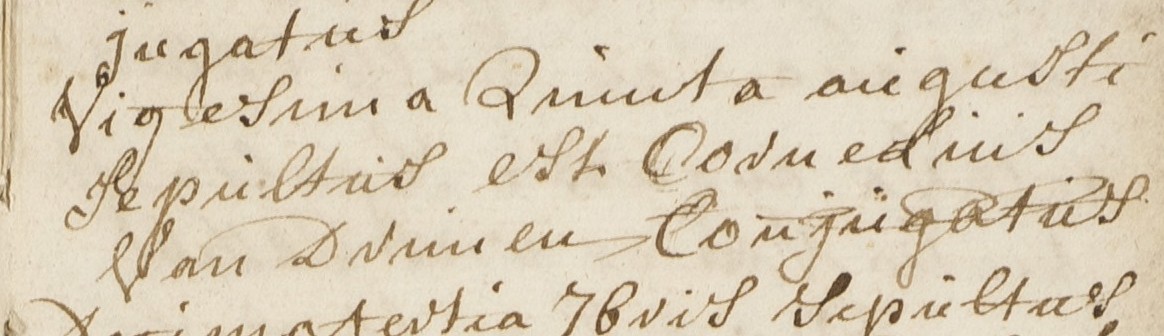 jugatus
Vigesima Quinta augusti
Sepultus est Cornelius
Van Drunen Conjugatus
Decima tertia 7bris Sepultus